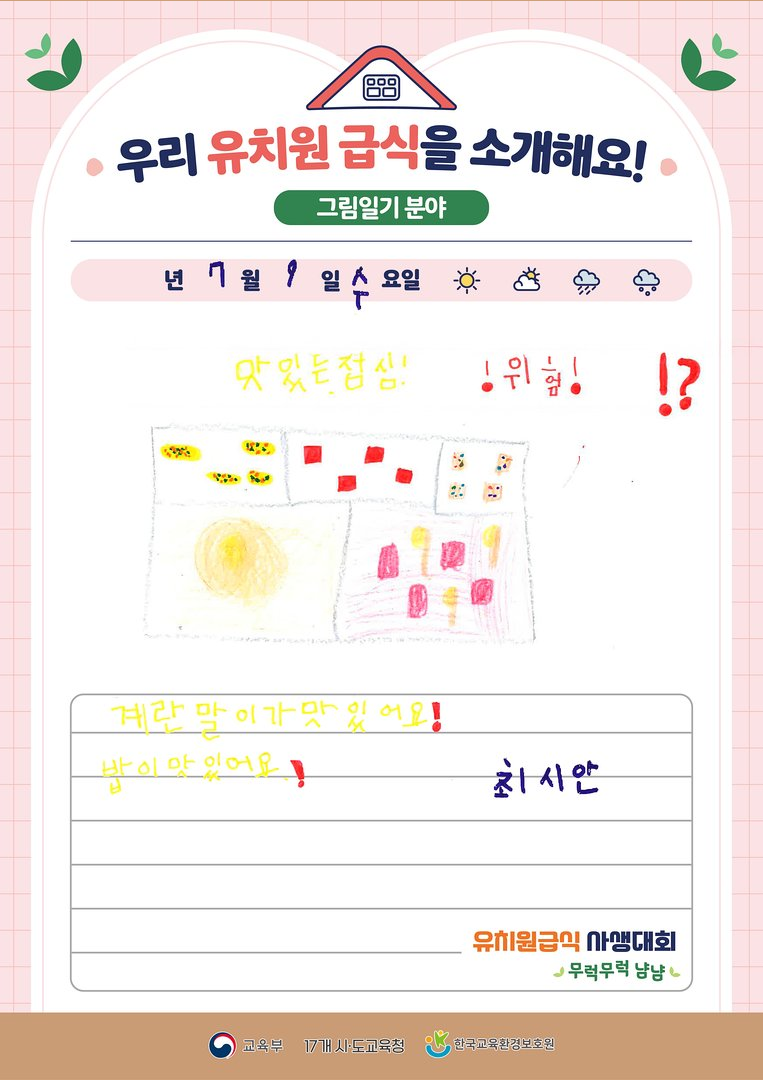 우리 유치원 급식을 소개해요!
그림일기 분야
년 7 월 9 일 수 요일
맛있는점심! !위험! !?
계란말이가맛있어요!
밥이맛있어요.!
최시안
유치원급식 사생대회
무럭무럭 냠냠
교육부 17개 시·도교육청 한국교육환경보호원